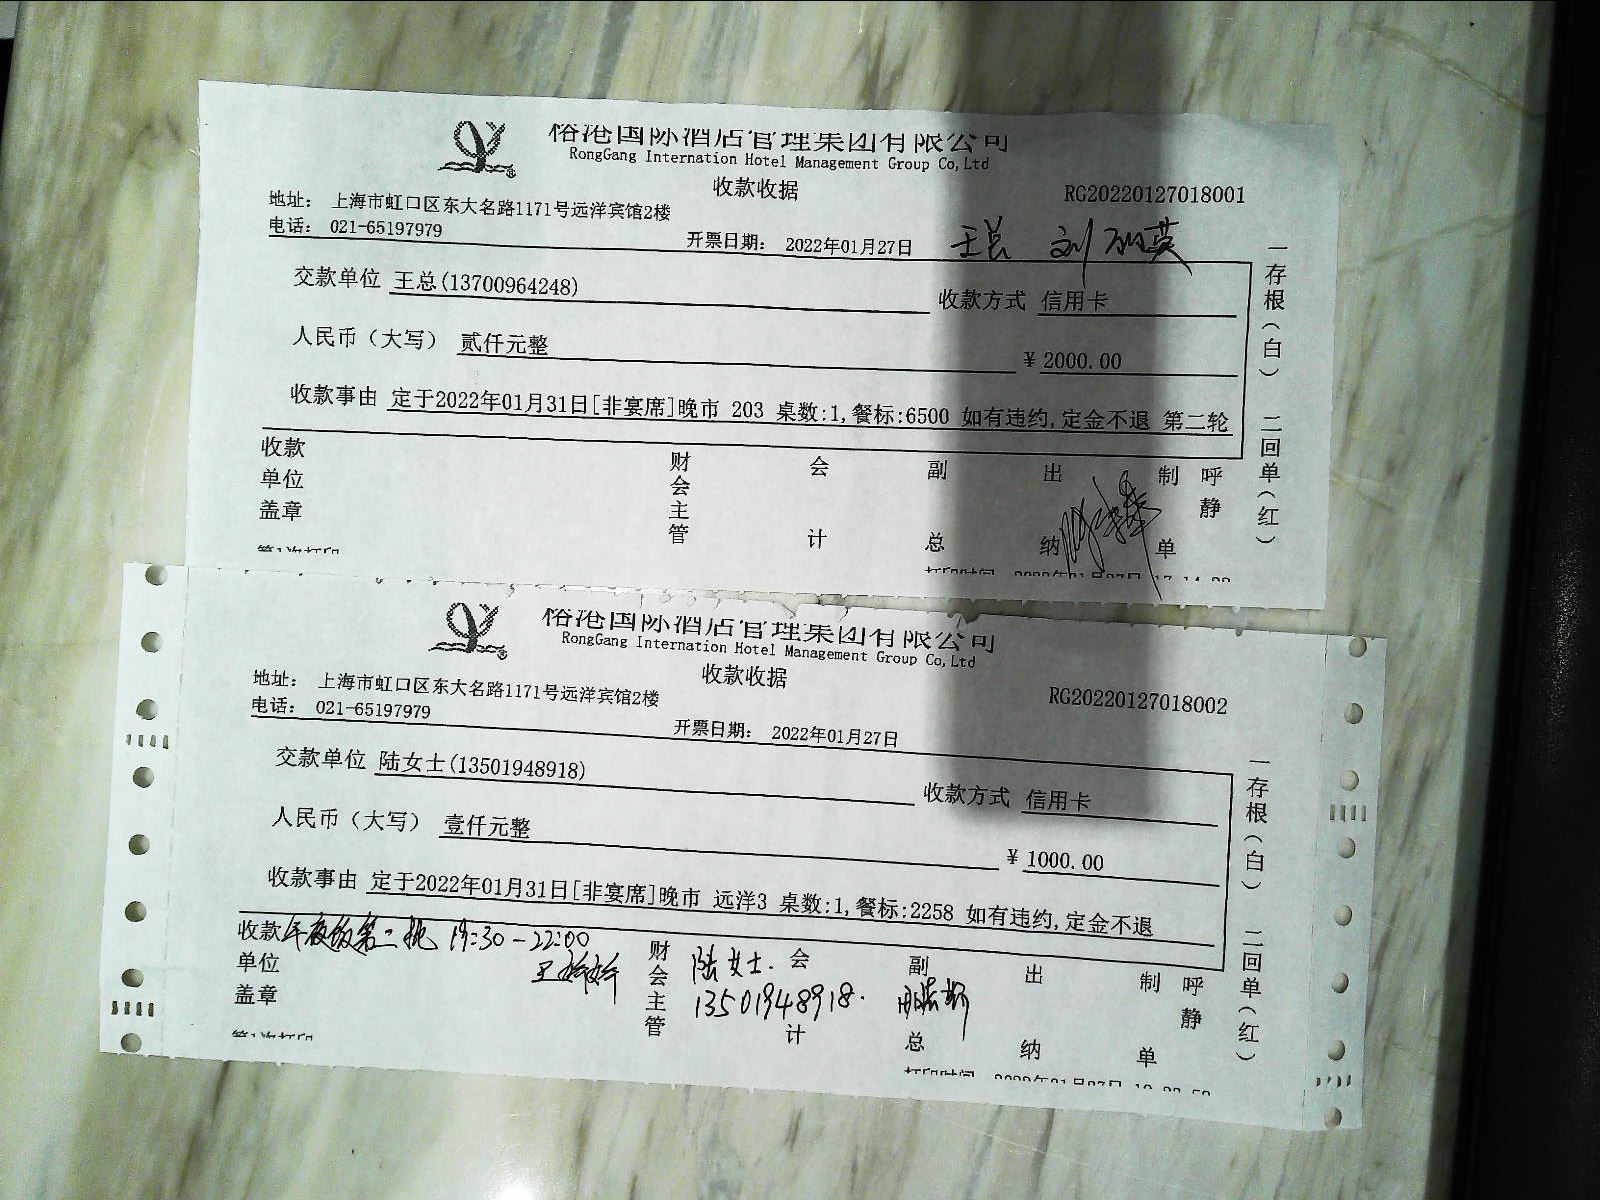 榕港国际酒店管理集团有限公司
RongGang Internation Hotel Management Group Co,Ltd
收款收据
RG20220127018001
地址： 上海市虹口区东大名路1171号远洋宾馆2楼
电话： 021-65197979
开票日期： 2022年01月27日
王总
交款单位 王总(13700964248)
收款方式 信用卡
人民币（大写） 贰仟元整
¥ 2000.00
收款事由 定于2022年01月31日[非宴席]晚市 203 桌数:1,餐标:6500 如有违约,定金不退 第二轮
收款单位盖章
财会主管
会计
副总
出纳
制单
呼静
一存根(白) 二回单(红)
第1次打印
打印时间 2022年01月27日
榕港国际酒店管理集团有限公司
RongGang Internation Hotel Management Group Co,Ltd
收款收据
RG20220127018002
地址： 上海市虹口区东大名路1171号远洋宾馆2楼
电话： 021-65197979
开票日期： 2022年01月27日
交款单位 陆女士(13501948918)
收款方式 信用卡
人民币（大写） 壹仟元整
¥ 1000.00
收款事由 定于2022年01月31日[非宴席]晚市 远洋3 桌数:1,餐标:2258 如有违约,定金不退
年夜饭第二批 19:30-22:00
收款单位盖章
财会主管
陆女士.
13501948918.
会计
副总
出纳
制单
呼静
一存根(白) 二回单(红)
第1次打印
打印时间 2022年01月27日